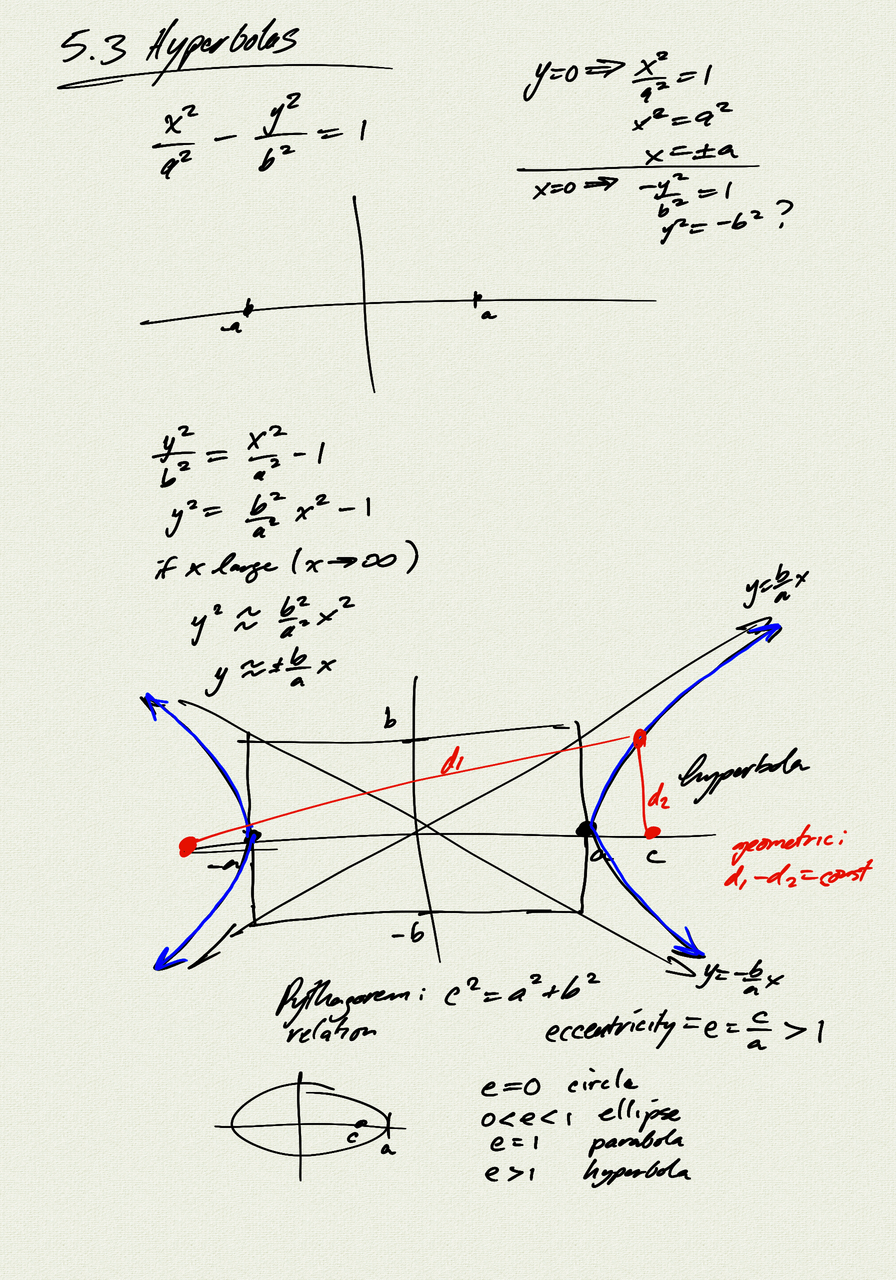 5.3 Hyperbolas
x²/a² - y²/b² = 1
y=0 ⇒ x²/a² = 1
x² = a²
x = ±a
x=0 ⇒ -y²/b² = 1
y² = -b² ?
-a
a
y²/b² = x²/a² - 1
y² = b²/a² x² - 1
if x large (x→∞)
y² ≈ b²/a² x²
y ≈ ±b/a x
y=b/a x
b
d₁
hyperbola
d₂
-a
a
c
geometric:
d₁-d₂=const
-b
y=-b/a x
Pythagorean: c²=a²+b²
relation
eccentricity = e = c/a > 1
e=0 circle
0<e<1 ellipse
e=1 parabola
e>1 hyperbola
c
a